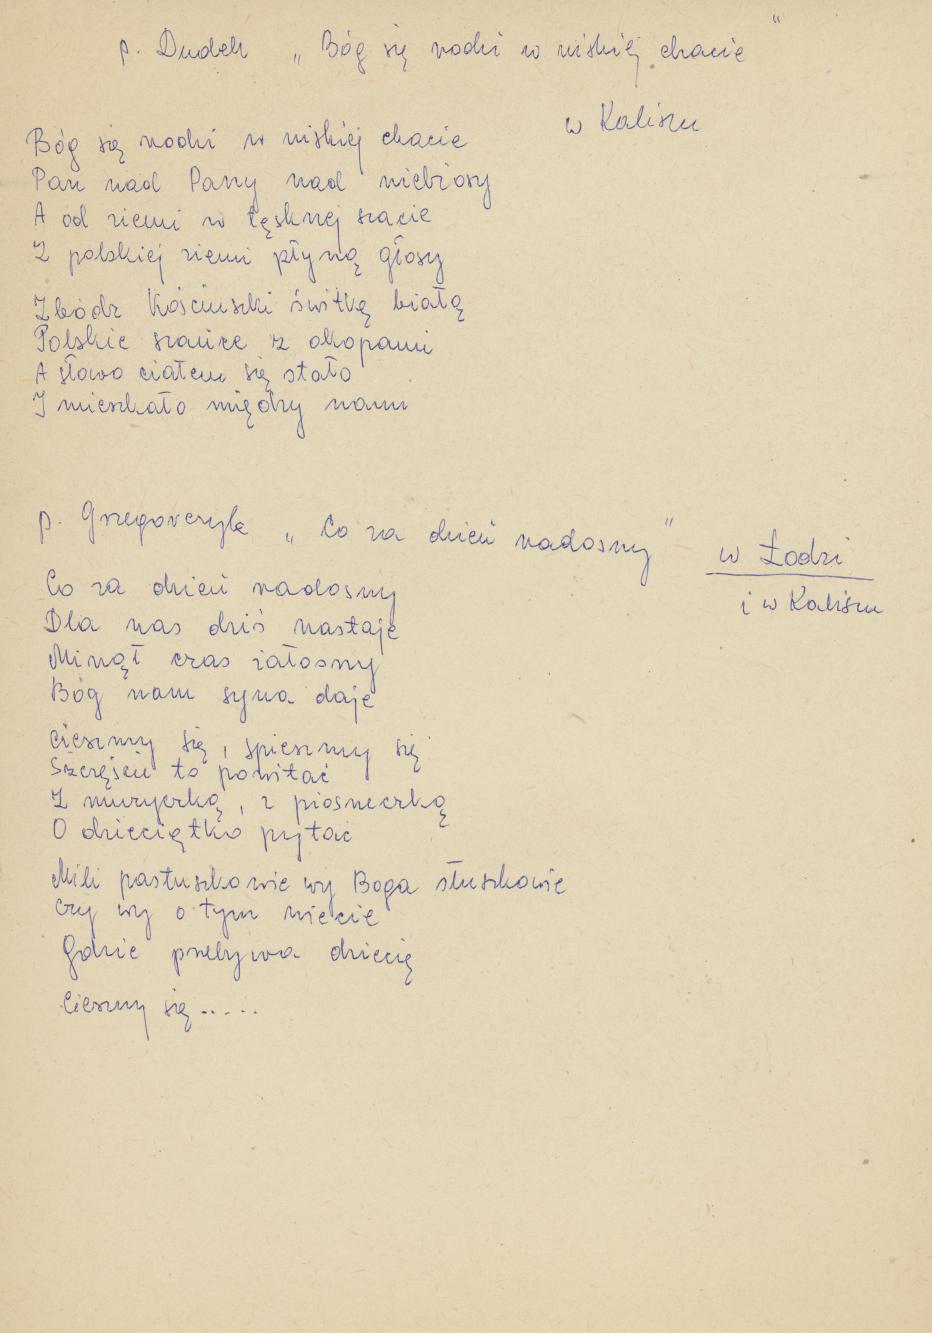 p. Dudek „Bóg się rodzi w niskiej chacie"
w Kaliszu
Bóg się rodzi w niskiej chacie
Pan nad Pany nad niebiosy
A od ziemi w tęsknej szacie
Z polskiej ziemi płyną głosy
Włódz Kościuszki świtkę białą
Polskie szańce z okopami
A słowo ciałem się stało
I mieszkało między nami
p. Grzegorczyk „Co za dzień radosny"
w Łodzi
i w Kaliszu
Co za dzień radosny
Dla nas dziś nastaje
Minął czas żałosny
Bóg nam syna daje
cieszmy się, spieszmy się
Szczęściu to powitać
Z muzyczką, z piosneczką
O dzieciątko pytać
Mili pastuszkowie wy Boga służkowie
czy wy o tym wiecie
Gdzie przebywa dziecię
Cieszmy się.....